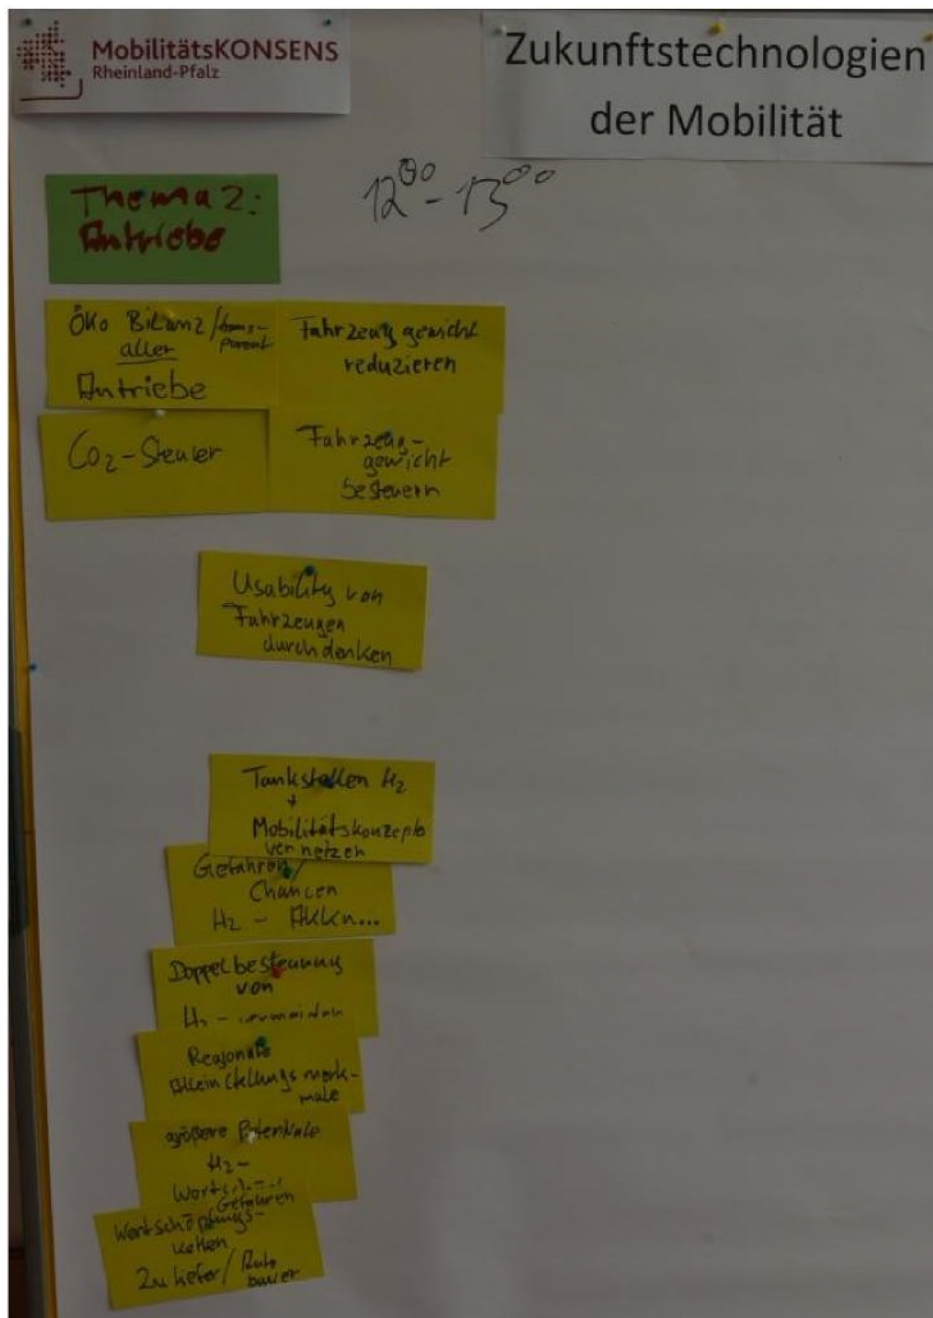 MobilitätsKONSENS
Rheinland-Pfalz
Zukunftstechnologien
der Mobilität
12⁰⁰ - 13⁰⁰
Thema 2:
Antriebe
Öko Bilanz / trans-
parent
aller
Antriebe
Fahrzeuggewicht
reduzieren
CO₂-Steuer
Fahrzeug-
gewicht
besteuern
Usability von
Fahrzeugen
durchdenken
Tankstellen H₂
+
Mobilitätskonzepte
vernetzen
Gefahren/
Chancen
H₂ - Akkn...
Doppelbesteuerung
von
H₂ - vermeiden
Regionale
Alleinstellungsmerk-
male
größere Potentiale
H₂ -
Gefahren
Wertschöpfungs-
ketten
Zuliefer / Auto
bauer